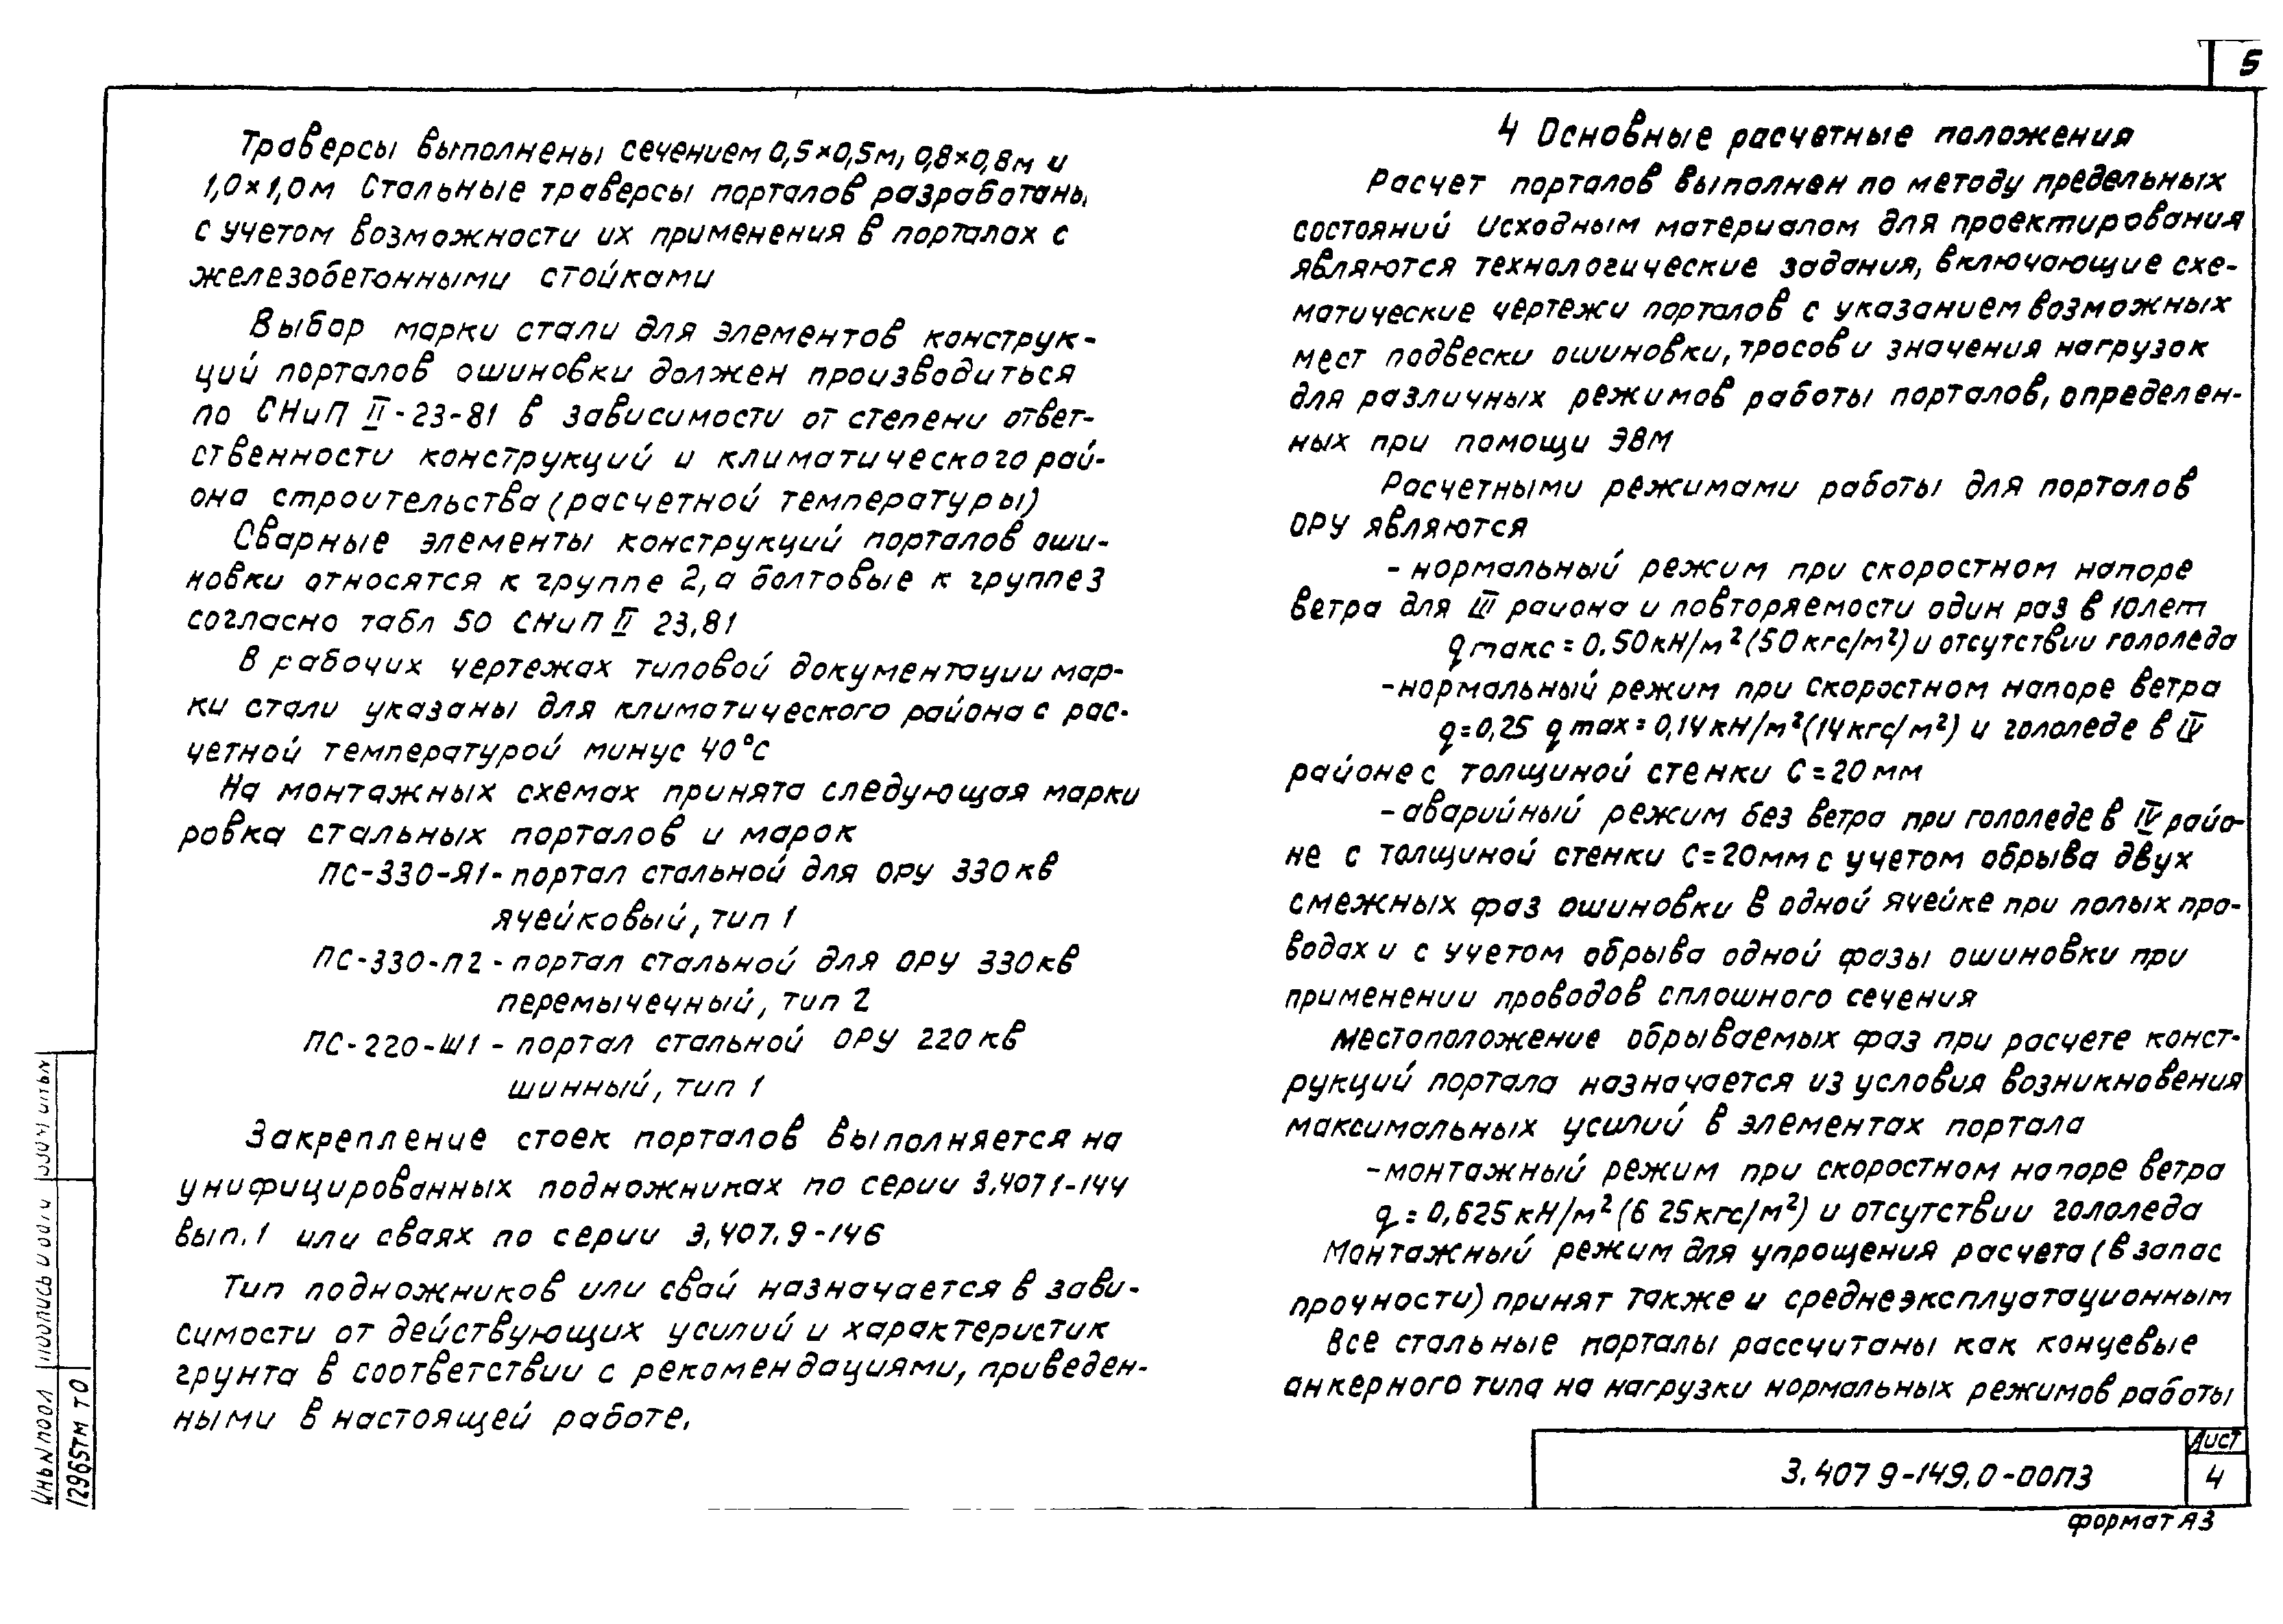 5
Траверсы выполнены сечением 0,5×0,5м, 0,8×0,8м и
1,0×1,0м Стальные траверсы порталов разработаны
с учетом возможности их применения в порталах с
железобетонными стойками
Выбор марки стали для элементов конструк-
ций порталов ошиновки должен производиться
по СНиП II-23-81 в зависимости от степени ответ-
ственности конструкций и климатического рай-
она строительства (расчетной температуры)
Сварные элементы конструкций порталов оши-
новки относятся к группе 2, а болтовые к группе 3
согласно табл 50 СНиП II 23.81
В рабочих чертежах типовой документации мар-
ки стали указаны для климатического района с рас-
четной температурой минус 40°С
На монтажных схемах принята следующая марки
ровка стальных порталов и марок
ПС-330-Я1- портал стальной для ОРУ 330кв
ячейковый, тип 1
ПС-330-П2 - портал стальной для ОРУ 330кв
перемычечный, тип 2
ПС-220-Ш1 - портал стальной ОРУ 220кв
шинный, тип 1
Закрепление стоек порталов выполняется на
унифицированных подножниках по серии 3.407 1-144
вып.1 или сваях по серии 3.407.9-146
Тип подножников или свай назначается в зави-
симости от действующих усилий и характеристик
грунта в соответствии с рекомендациями, приведен-
ными в настоящей работе.
4 Основные расчетные положения
Расчет порталов выполнен по методу предельных
состояний Исходным материалом для проектирования
являются технологические задания, включающие схе-
матические чертежи порталов с указанием возможных
мест подвески ошиновки, тросов и значения нагрузок
для различных режимов работы порталов, определен-
ных при помощи ЭВМ
Расчетными режимами работы для порталов
ОРУ являются
- нормальный режим при скоростном напоре
ветра для III района и повторяемости один раз в 10 лет
q макс = 0.50кН/м²(50кгс/м²) и отсутствии гололеда
-нормальный режим при скоростном напоре ветра
q=0,25 q max = 0,14кН/м²(14кгс/м²) и гололеде в IV
районе с толщиной стенки С=20мм
-аварийный режим без ветра при гололеде в IV райо-
не с толщиной стенки С=20мм с учетом обрыва двух
смежных фаз ошиновки в одной ячейке при полых про-
водах и с учетом обрыва одной фазы ошиновки при
применении проводов сплошного сечения
Местоположение обрываемых фаз при расчете конст-
рукций портала назначается из условия возникновения
максимальных усилий в элементах портала
-монтажный режим при скоростном напоре ветра
q = 0,625кН/м²(6 25кгс/м²) и отсутствии гололеда
Монтажный режим для упрощения расчета (в запас
прочности) принят также и среднеэксплуатационным
Все стальные порталы рассчитаны как концевые
анкерного типа на нагрузки нормальных режимов работы
3.407 9-149.0-00ПЗ
Лист
4
Формат А3
Инв N подл
Подпись и дата
12965тм т0